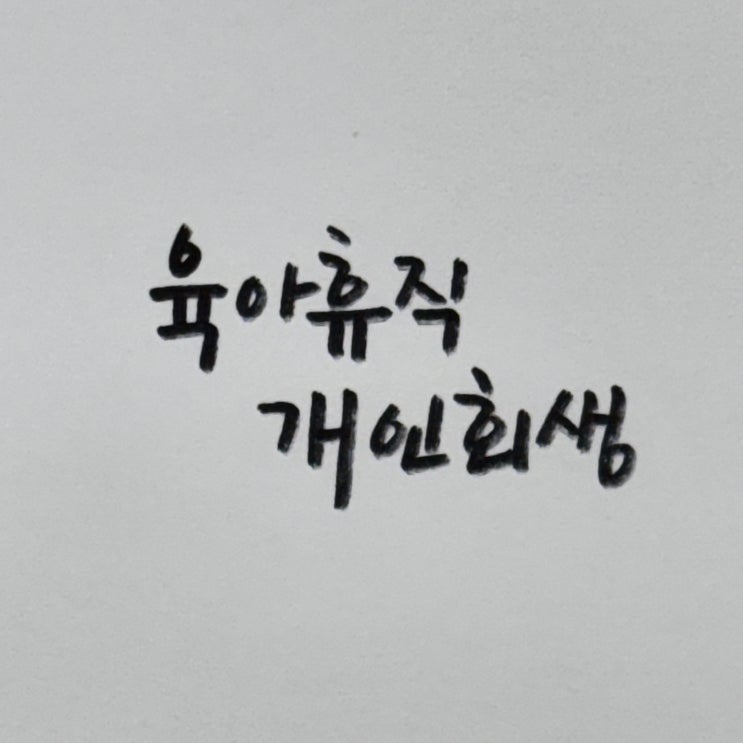 육아휴직
개인회생